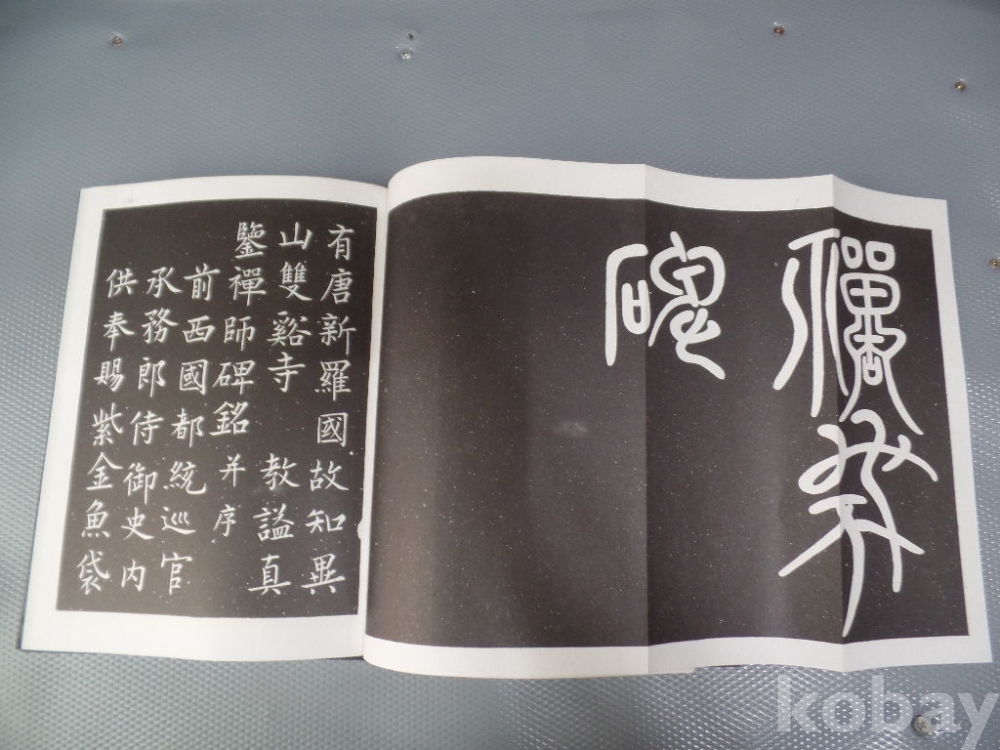 禪師
碑
有唐新羅國故知異
山雙谿寺 教謚真
鑒禪師碑銘 并序
前西國都統巡官
承務郎侍御史內
供奉賜紫金魚袋
kobay